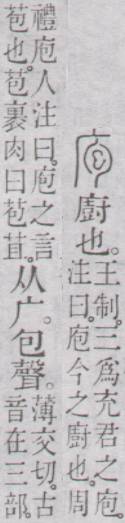 庖
廚也。
王制。三爲充君之庖。
注曰。庖今之廚也。周
禮庖人注曰。庖之言
苞也。苞裹肉曰苞苴。
从广。包聲。
薄交切。古
音在三部。